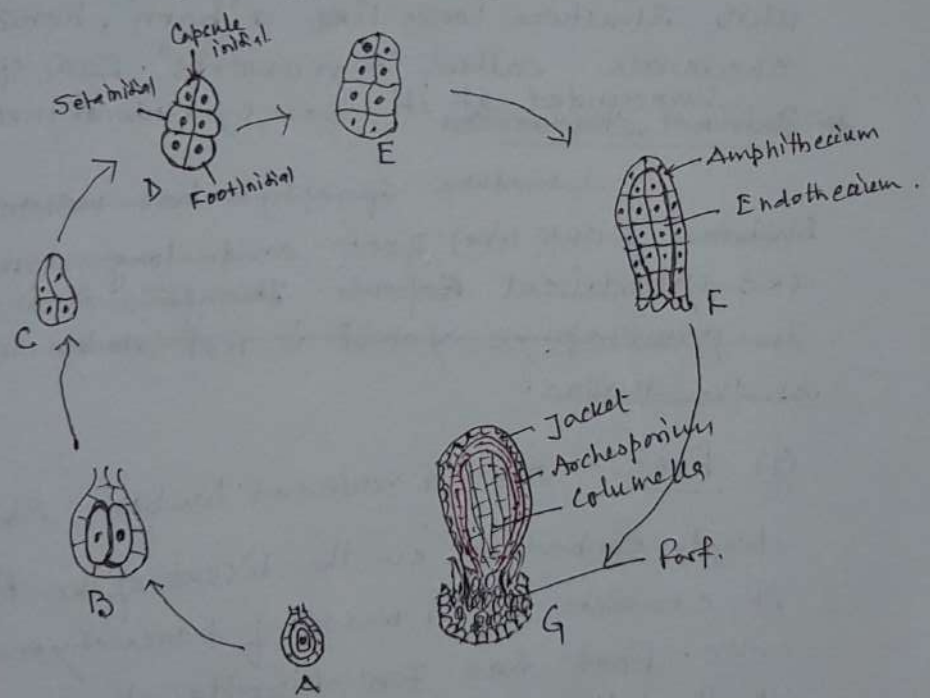 Capsule
initial
Setainidial
Footinidial
D
E
Amphithecium
Endothecium.
F
C
B
A
Jacket
Archesporium
Columella
G